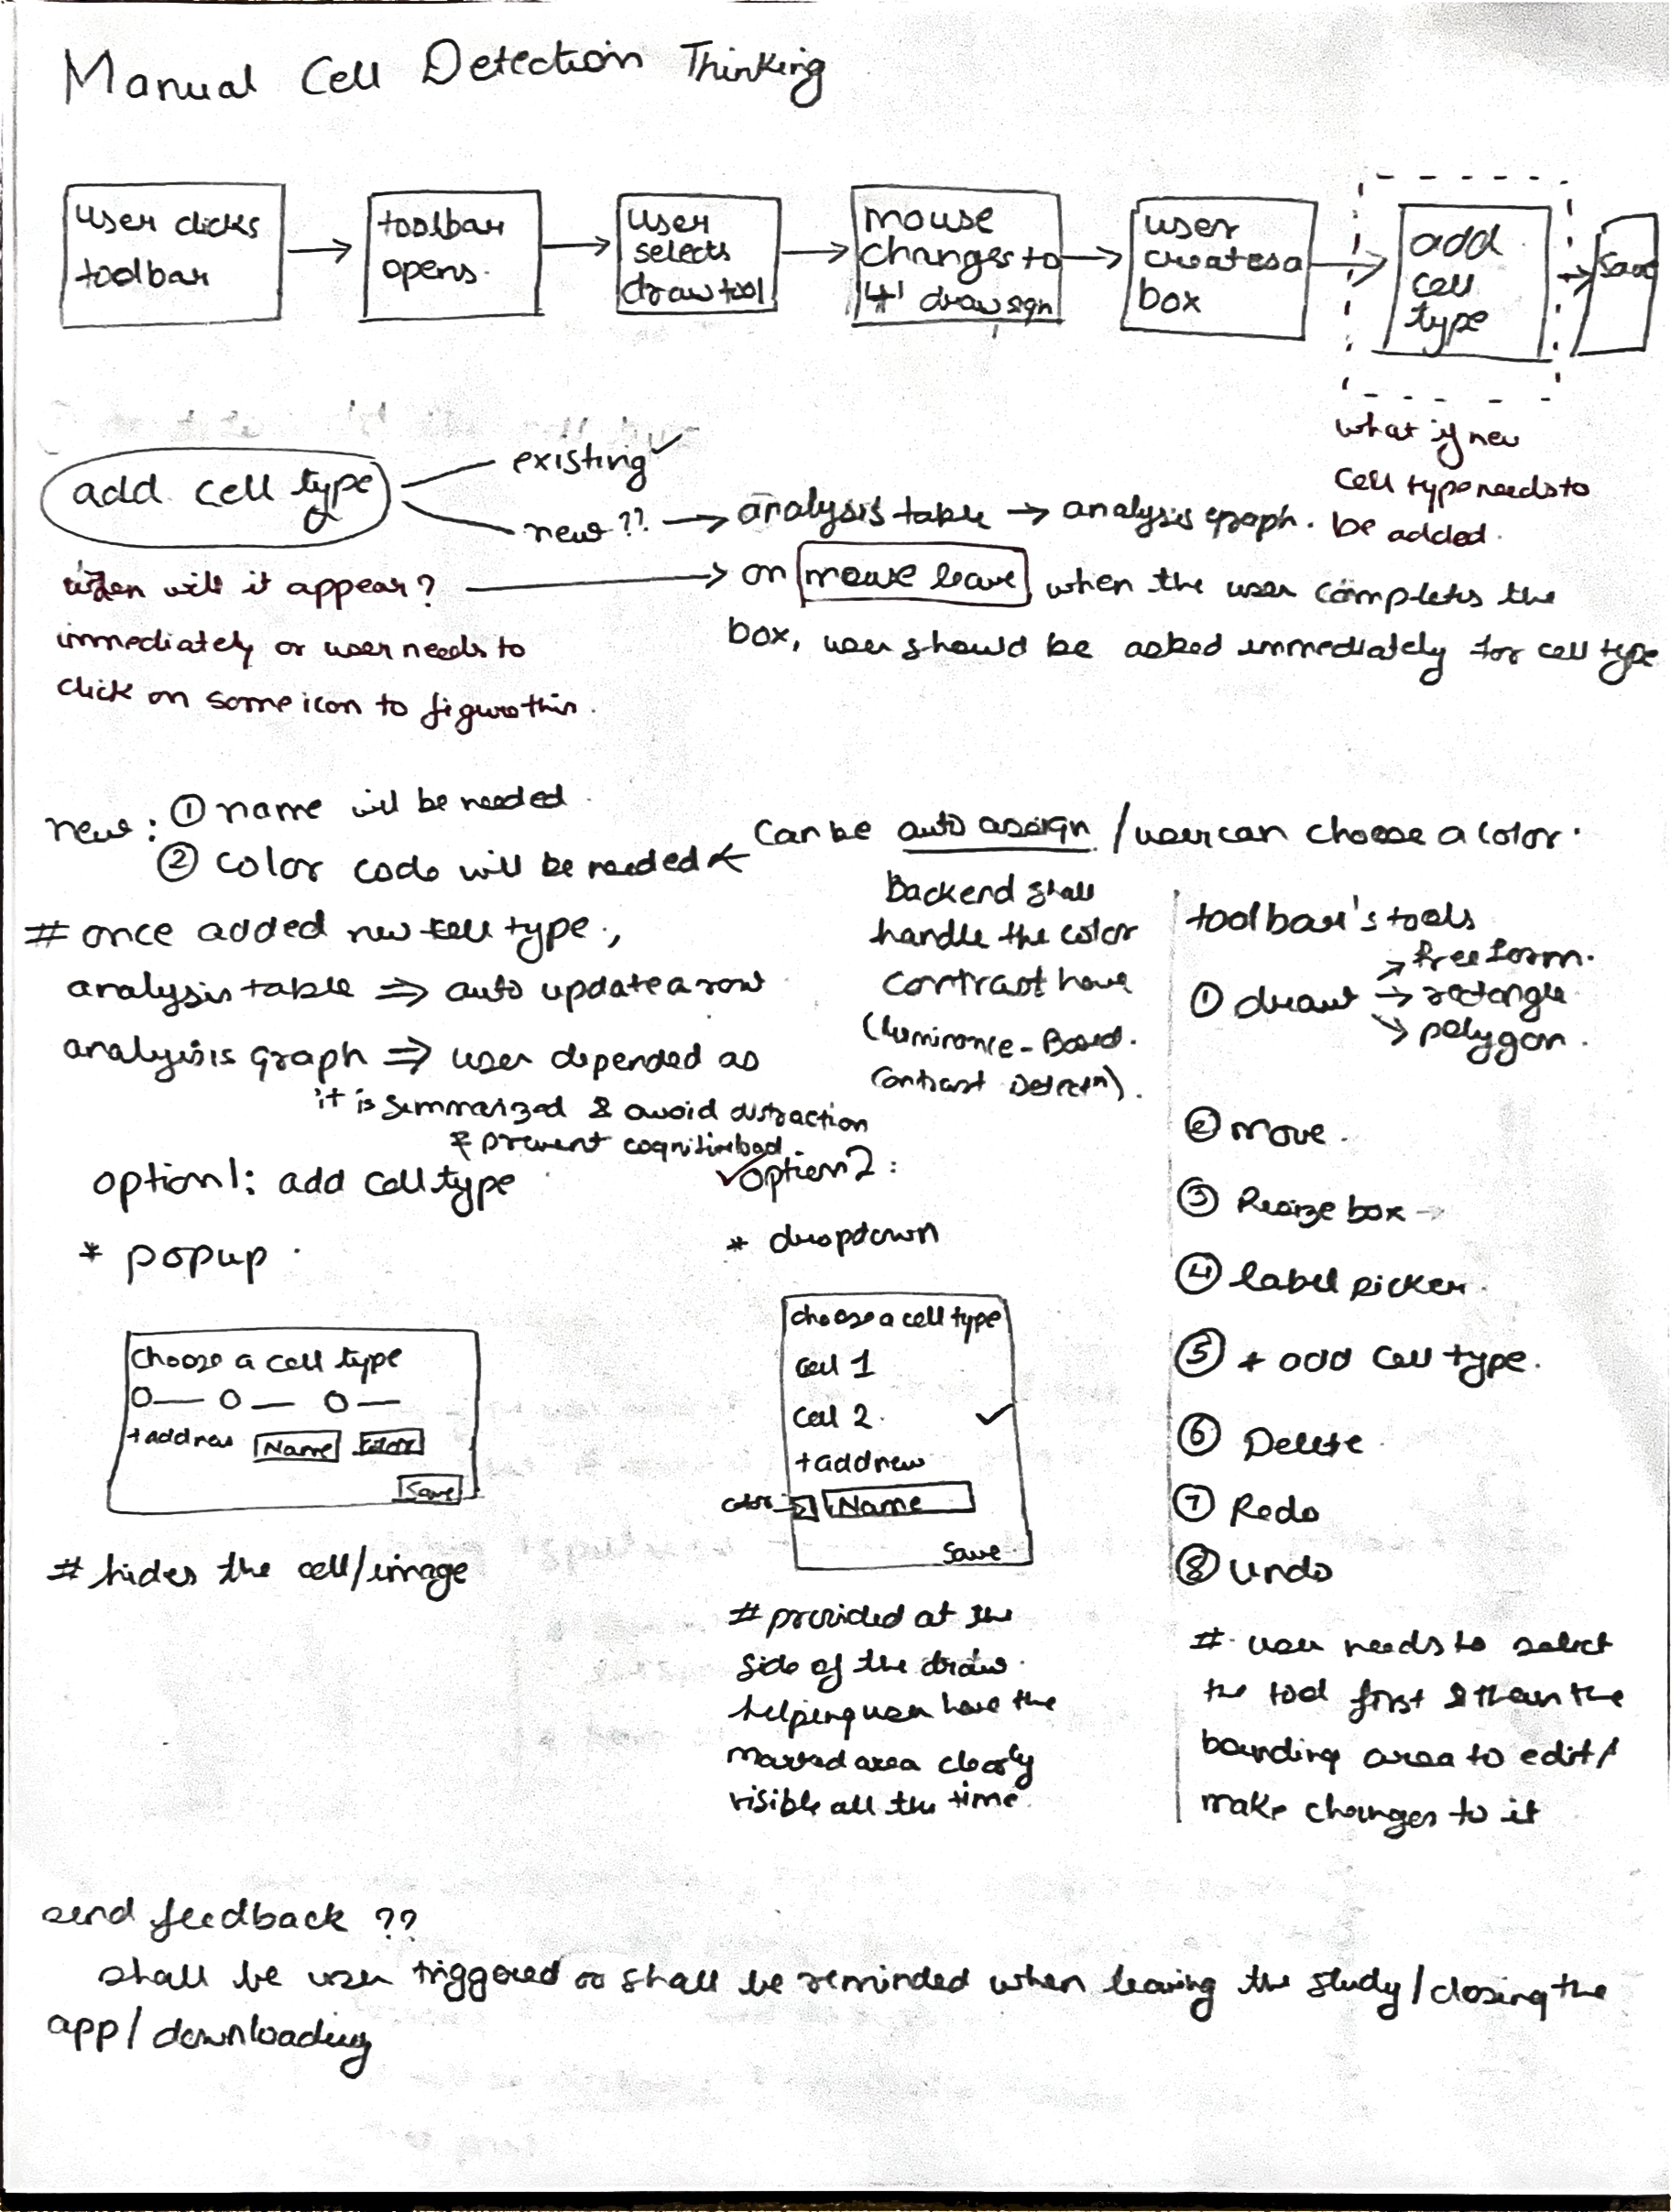 Manual Cell Detection Thinking
user clicks
toolbar
toolbar
opens.
user
selects
draw tool
mouse
changes to
'+' draw sign
user
creates a
box
add
cell
type
save
what if new
cell type needs to
be added.
add cell type
existing ✓
new?? → analysis table → analysis graph.
when will it appear?
immediately or user needs to
click on some icon to figure this.
→ on mouse leave when the user completes the
box, user should be asked immediately for cell type
new: ① name will be needed.
② color code will be needed ← can be auto assign / user can choose a color.
Backend shall
handle the color
contrast here
(luminance-Based.
Contrast Detectn).
# once added new cell type,
analysis table ⇒ auto update a row
analysis graph ⇒ user depended as
it is summarized & avoid distraction
& prevent cognitive load
option1: add cell type
* popup
choose a cell type
O— O— O—
+ add new Name Color
Save
# hides the cell/image
✓ option2:
* dropdown
choose a cell type
cell 1
cell 2. ✓
+ add new
color → Name
Save
# provided at the
side of the draw
helping user have the
marked area clearly
visible all the time.
toolbar's tools
① draw → free form.
→ rectangle
→ polygon.
② move.
③ Resize box →
④ label picker.
⑤ + add cell type.
⑥ Delete
⑦ Redo
⑧ Undo
# user needs to select
the tool first & then the
bounding area to edit/
make changes to it
send feedback ??
shall be user triggered or shall be reminded when leaving the study/closing the
app/downloading